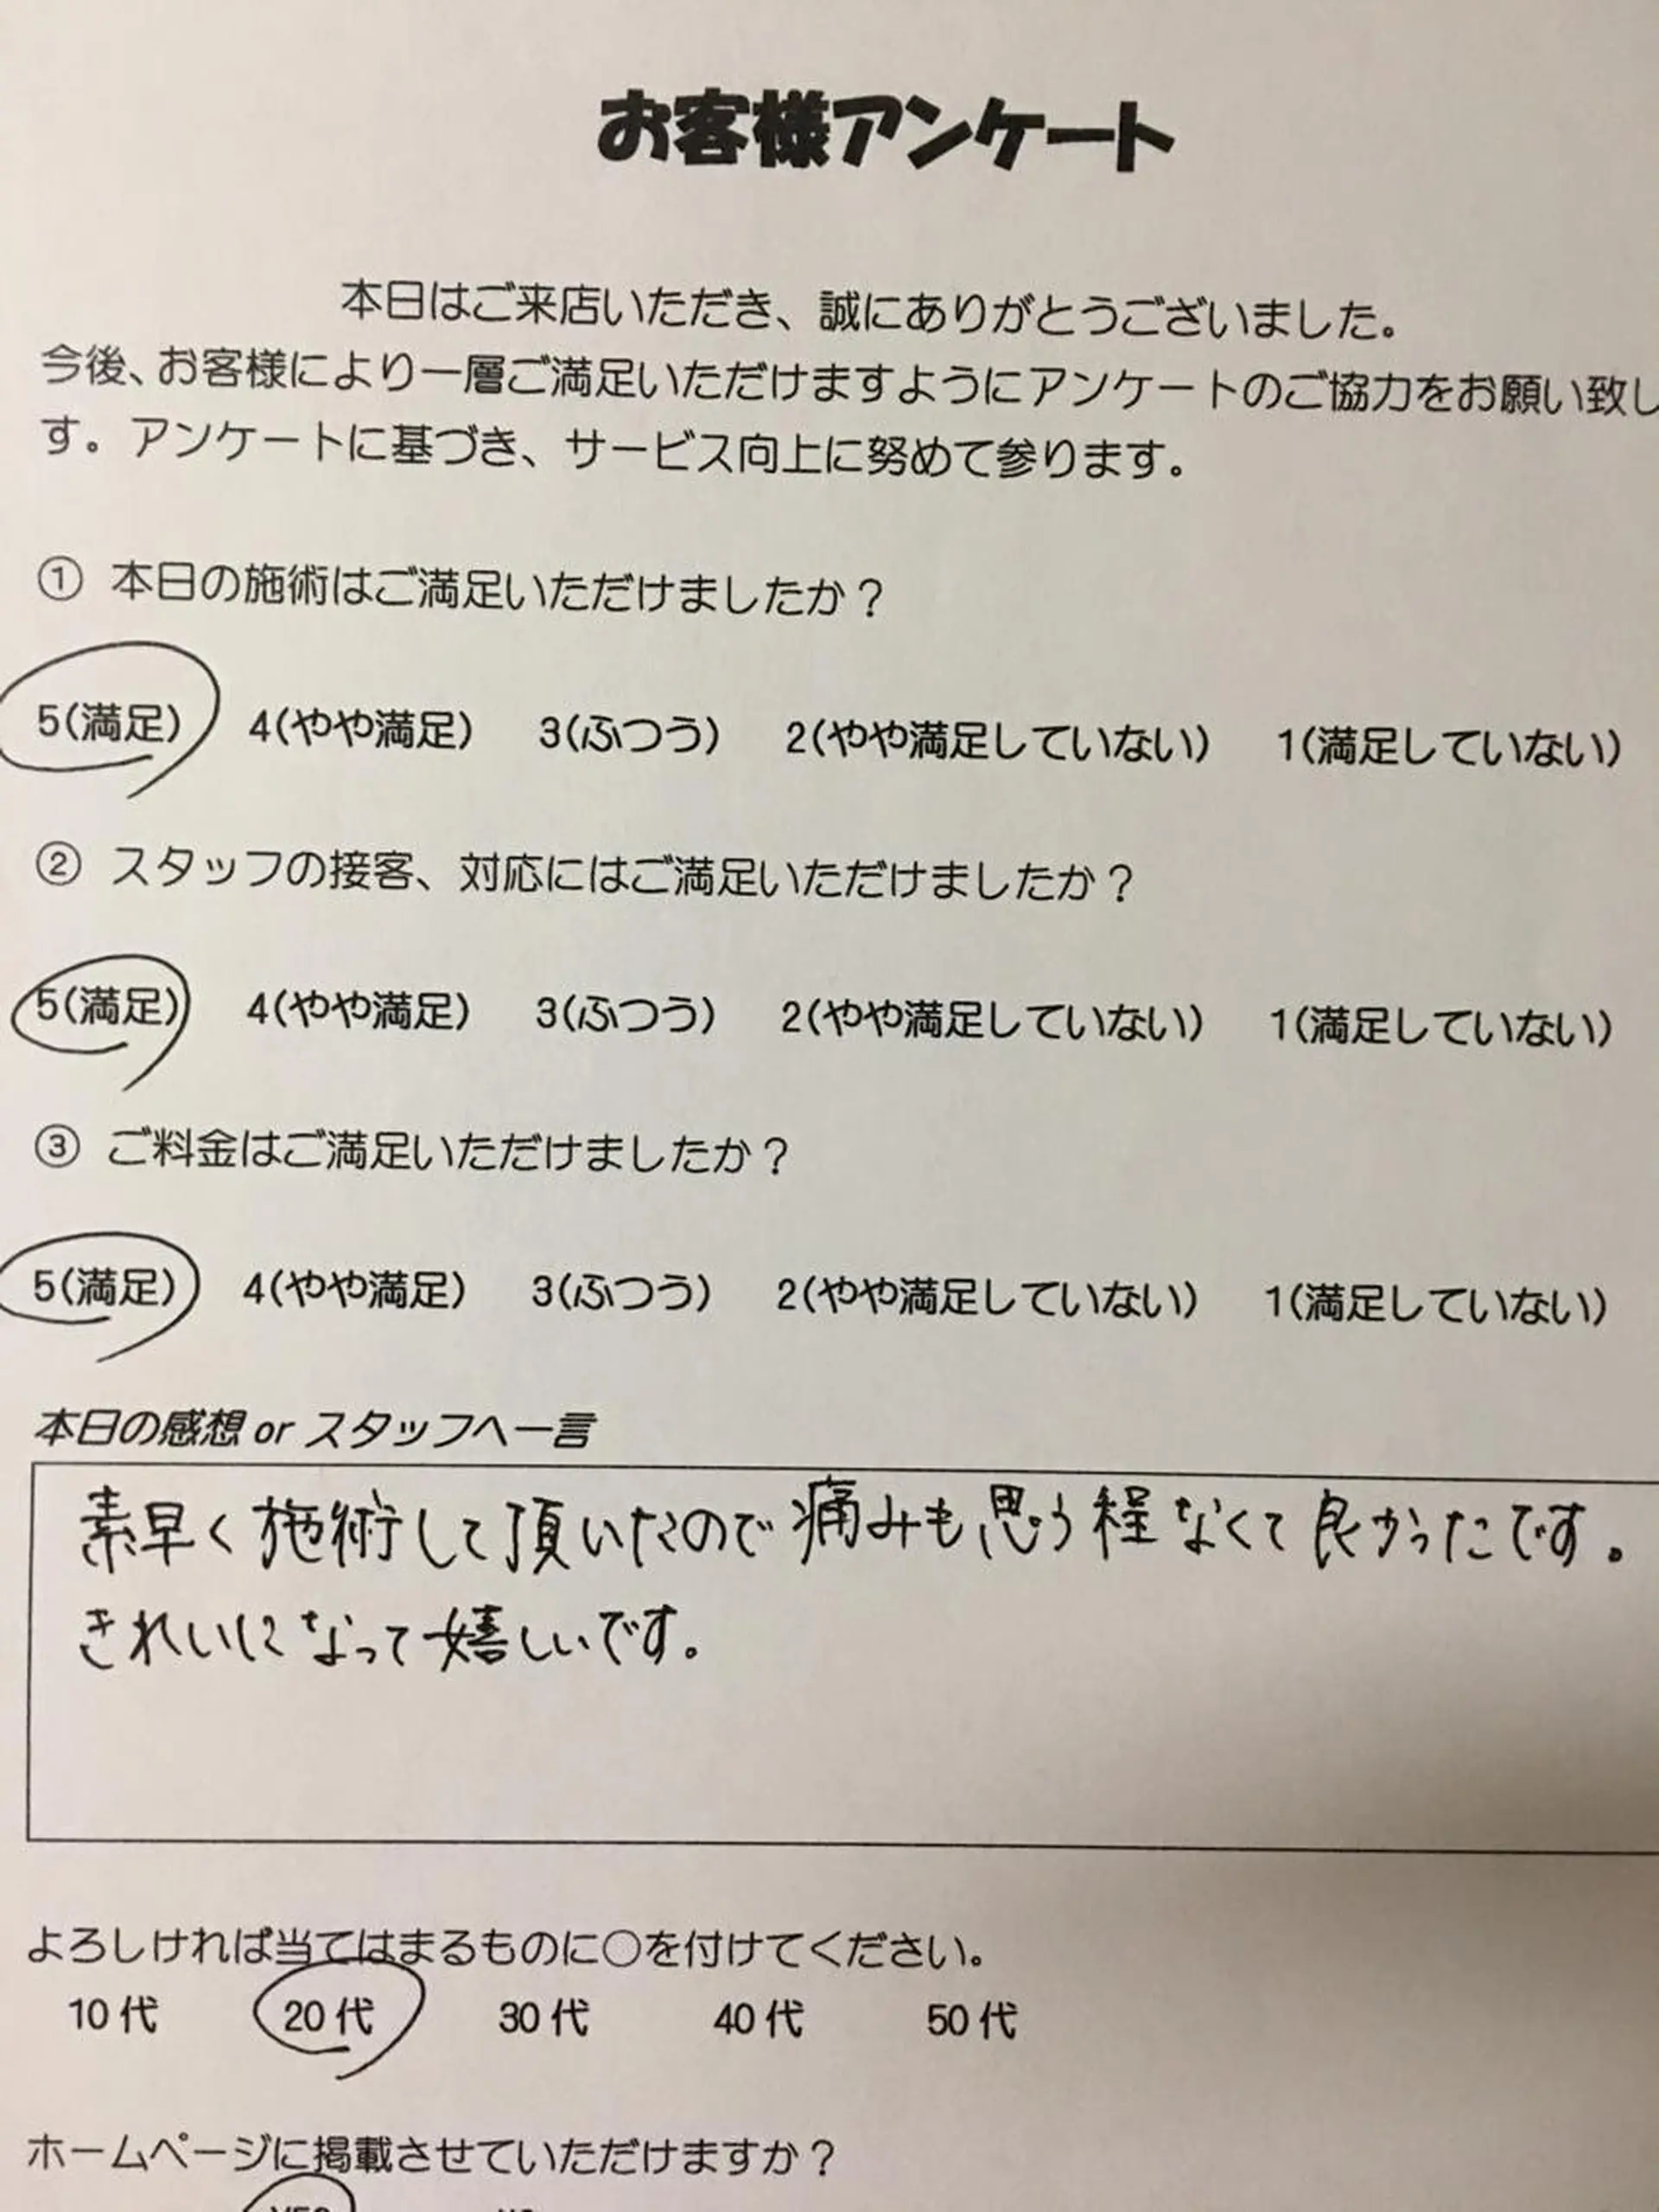 お客様アンケート
本日はご来店いただき、誠にありがとうございました。
今後、お客様により一層ご満足いただけますようにアンケートのご協力をお願い致し
す。アンケートに基づき、サービス向上に努めて参ります。
① 本日の施術はご満足いただけましたか？
5(満足) 4(やや満足) 3(ふつう) 2(やや満足していない) 1(満足していない)
② スタッフの接客、対応にはご満足いただけましたか？
5(満足) 4(やや満足) 3(ふつう) 2(やや満足していない) 1(満足していない)
③ ご料金はご満足いただけましたか？
5(満足) 4(やや満足) 3(ふつう) 2(やや満足していない) 1(満足していない)
本日の感想 or スタッフへ一言
素早く施術して頂いたので痛みも思う程なくて良かったです。
きれいになって嬉しいです。
よろしければ当てはまるものに○を付けてください。
10代 20代 30代 40代 50代
ホームページに掲載させていただけますか？